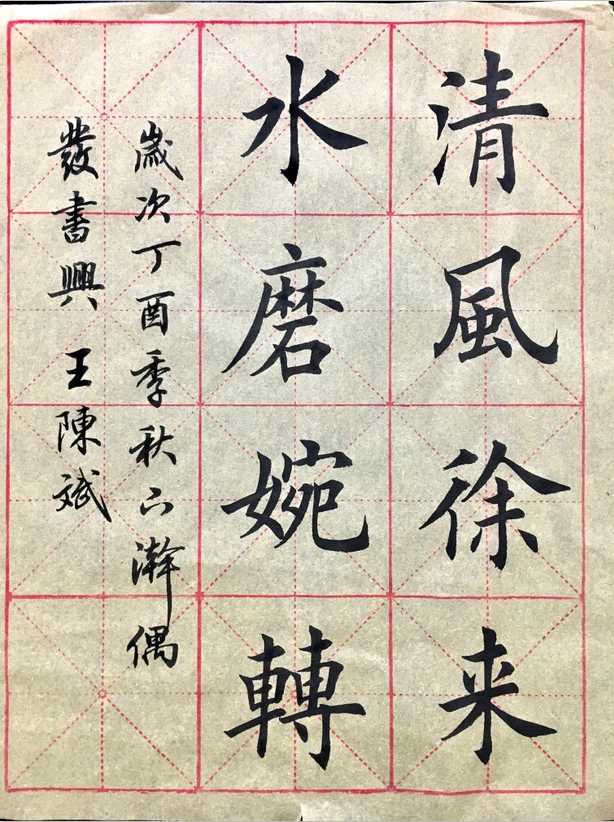 清風徐来
水磨婉轉
歲次丁酉季秋下澣偶
發書興 王陳斌